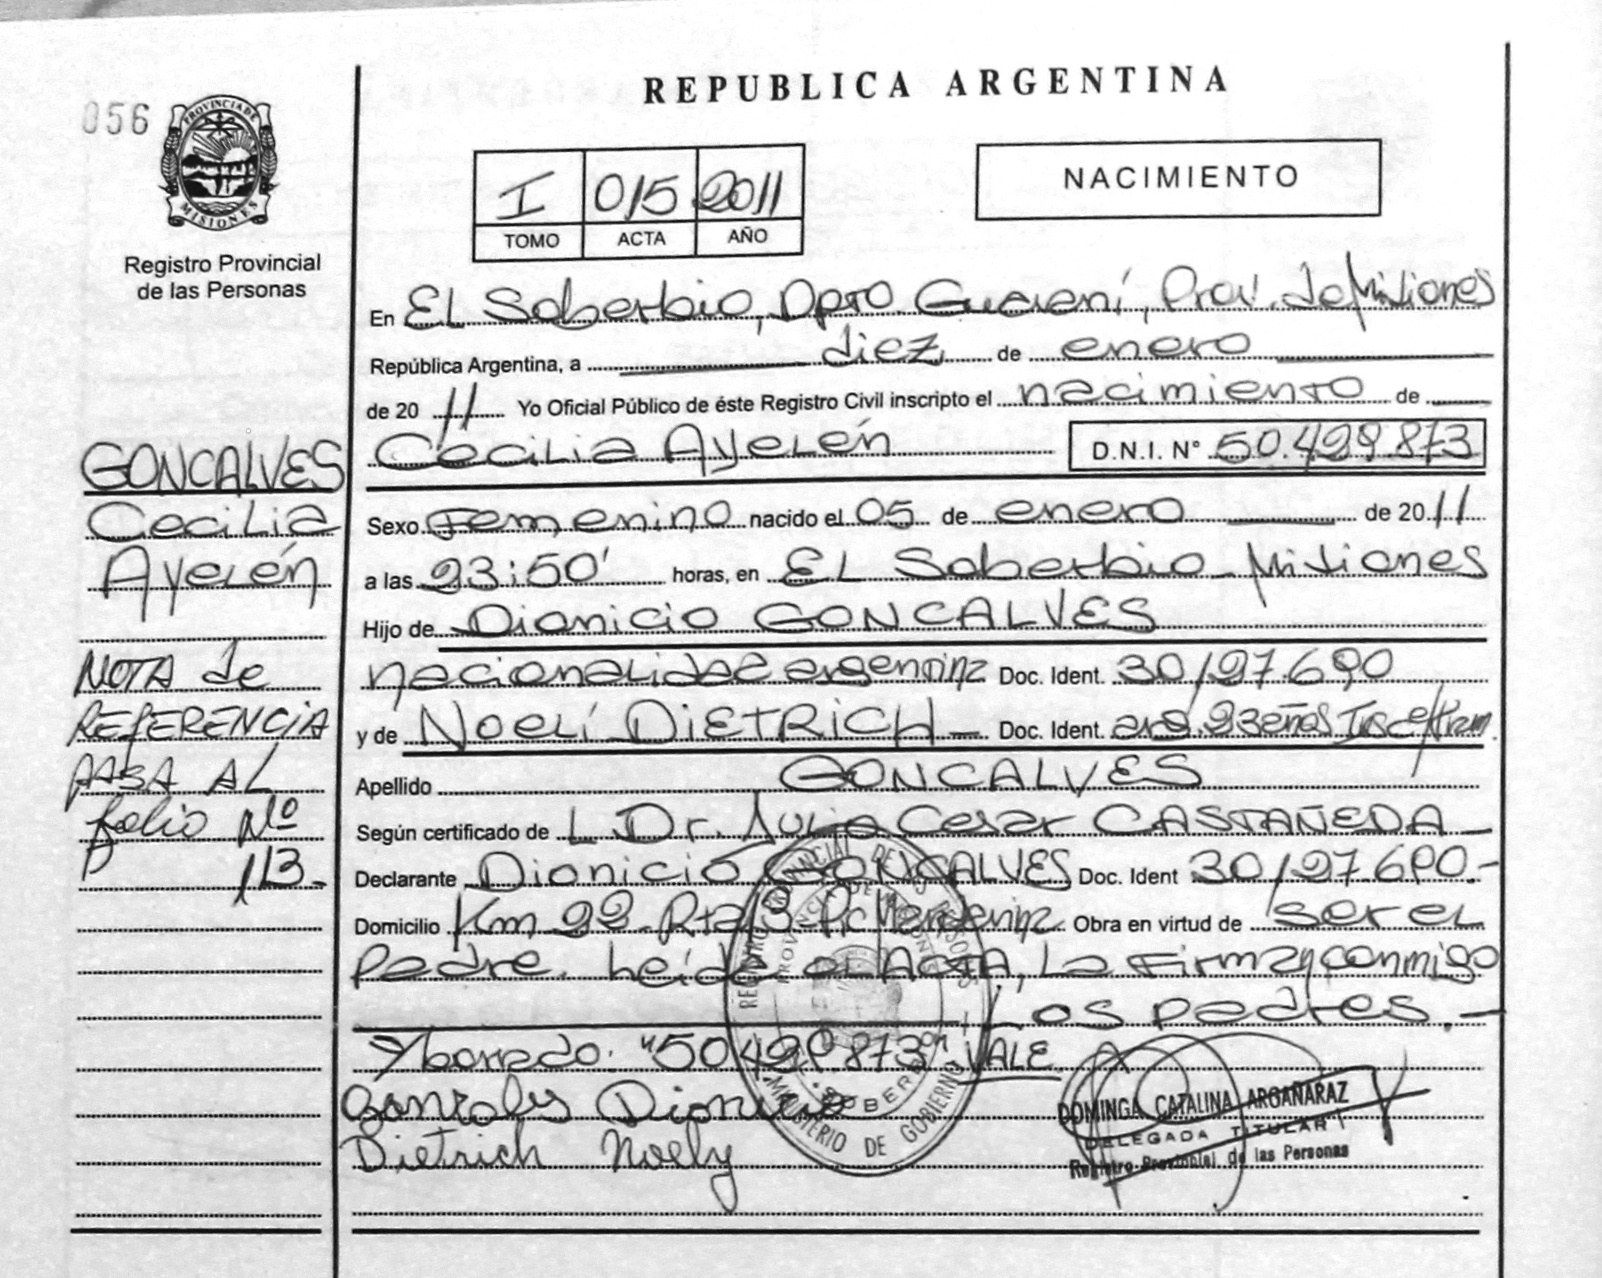 REPUBLICA ARGENTINA
056
PROVINCIA DE
MISIONES
Registro Provincial
de las Personas
I 015 2011
TOMO ACTA AÑO
NACIMIENTO
En EL Soberbio, Dpto. Guaraní, Prov. de Misiones
República Argentina, a diez de enero
de 20 11 Yo Oficial Público de éste Registro Civil inscripto el nacimiento de
Cecilia Ayelén D.N.I. N° 50.429.873
Sexo Femenino nacido el 05 de enero de 20 11
a las 23:50' horas, en EL Soberbio - Misiones
Hijo de Dionicio GONCALVES
nacionalidad argentina Doc. Ident. 30.127.690
y de Noelí DIETRICH - Doc. Ident. arg. 23 años
Apellido GONCALVES
Según certificado de L Dr. Julio Cesar CASTAÑEDA -
Declarante Dionicio GONCALVES Doc. Ident 30.127.690.-
Domicilio Km 22. Rta 13. Obra en virtud de ser el
Padre. Leída el ACTA, La Firman conmigo
Los padres.-
"50.429.873" VALE
Dionicio
Dietrich Noely
GONCALVES
Cecilia
Ayelén
NOTA de
REFERENCIA
PASA AL
folio Nº
113.-
REGISTRO PROVINCIAL DE LAS PERSONAS
PROVINCIA DE MISIONES
MINISTERIO DE GOBIERNO
DOMINGA CATALINA ARGAÑARAZ
DELEGADA TITULAR
Registro Provincial de las Personas